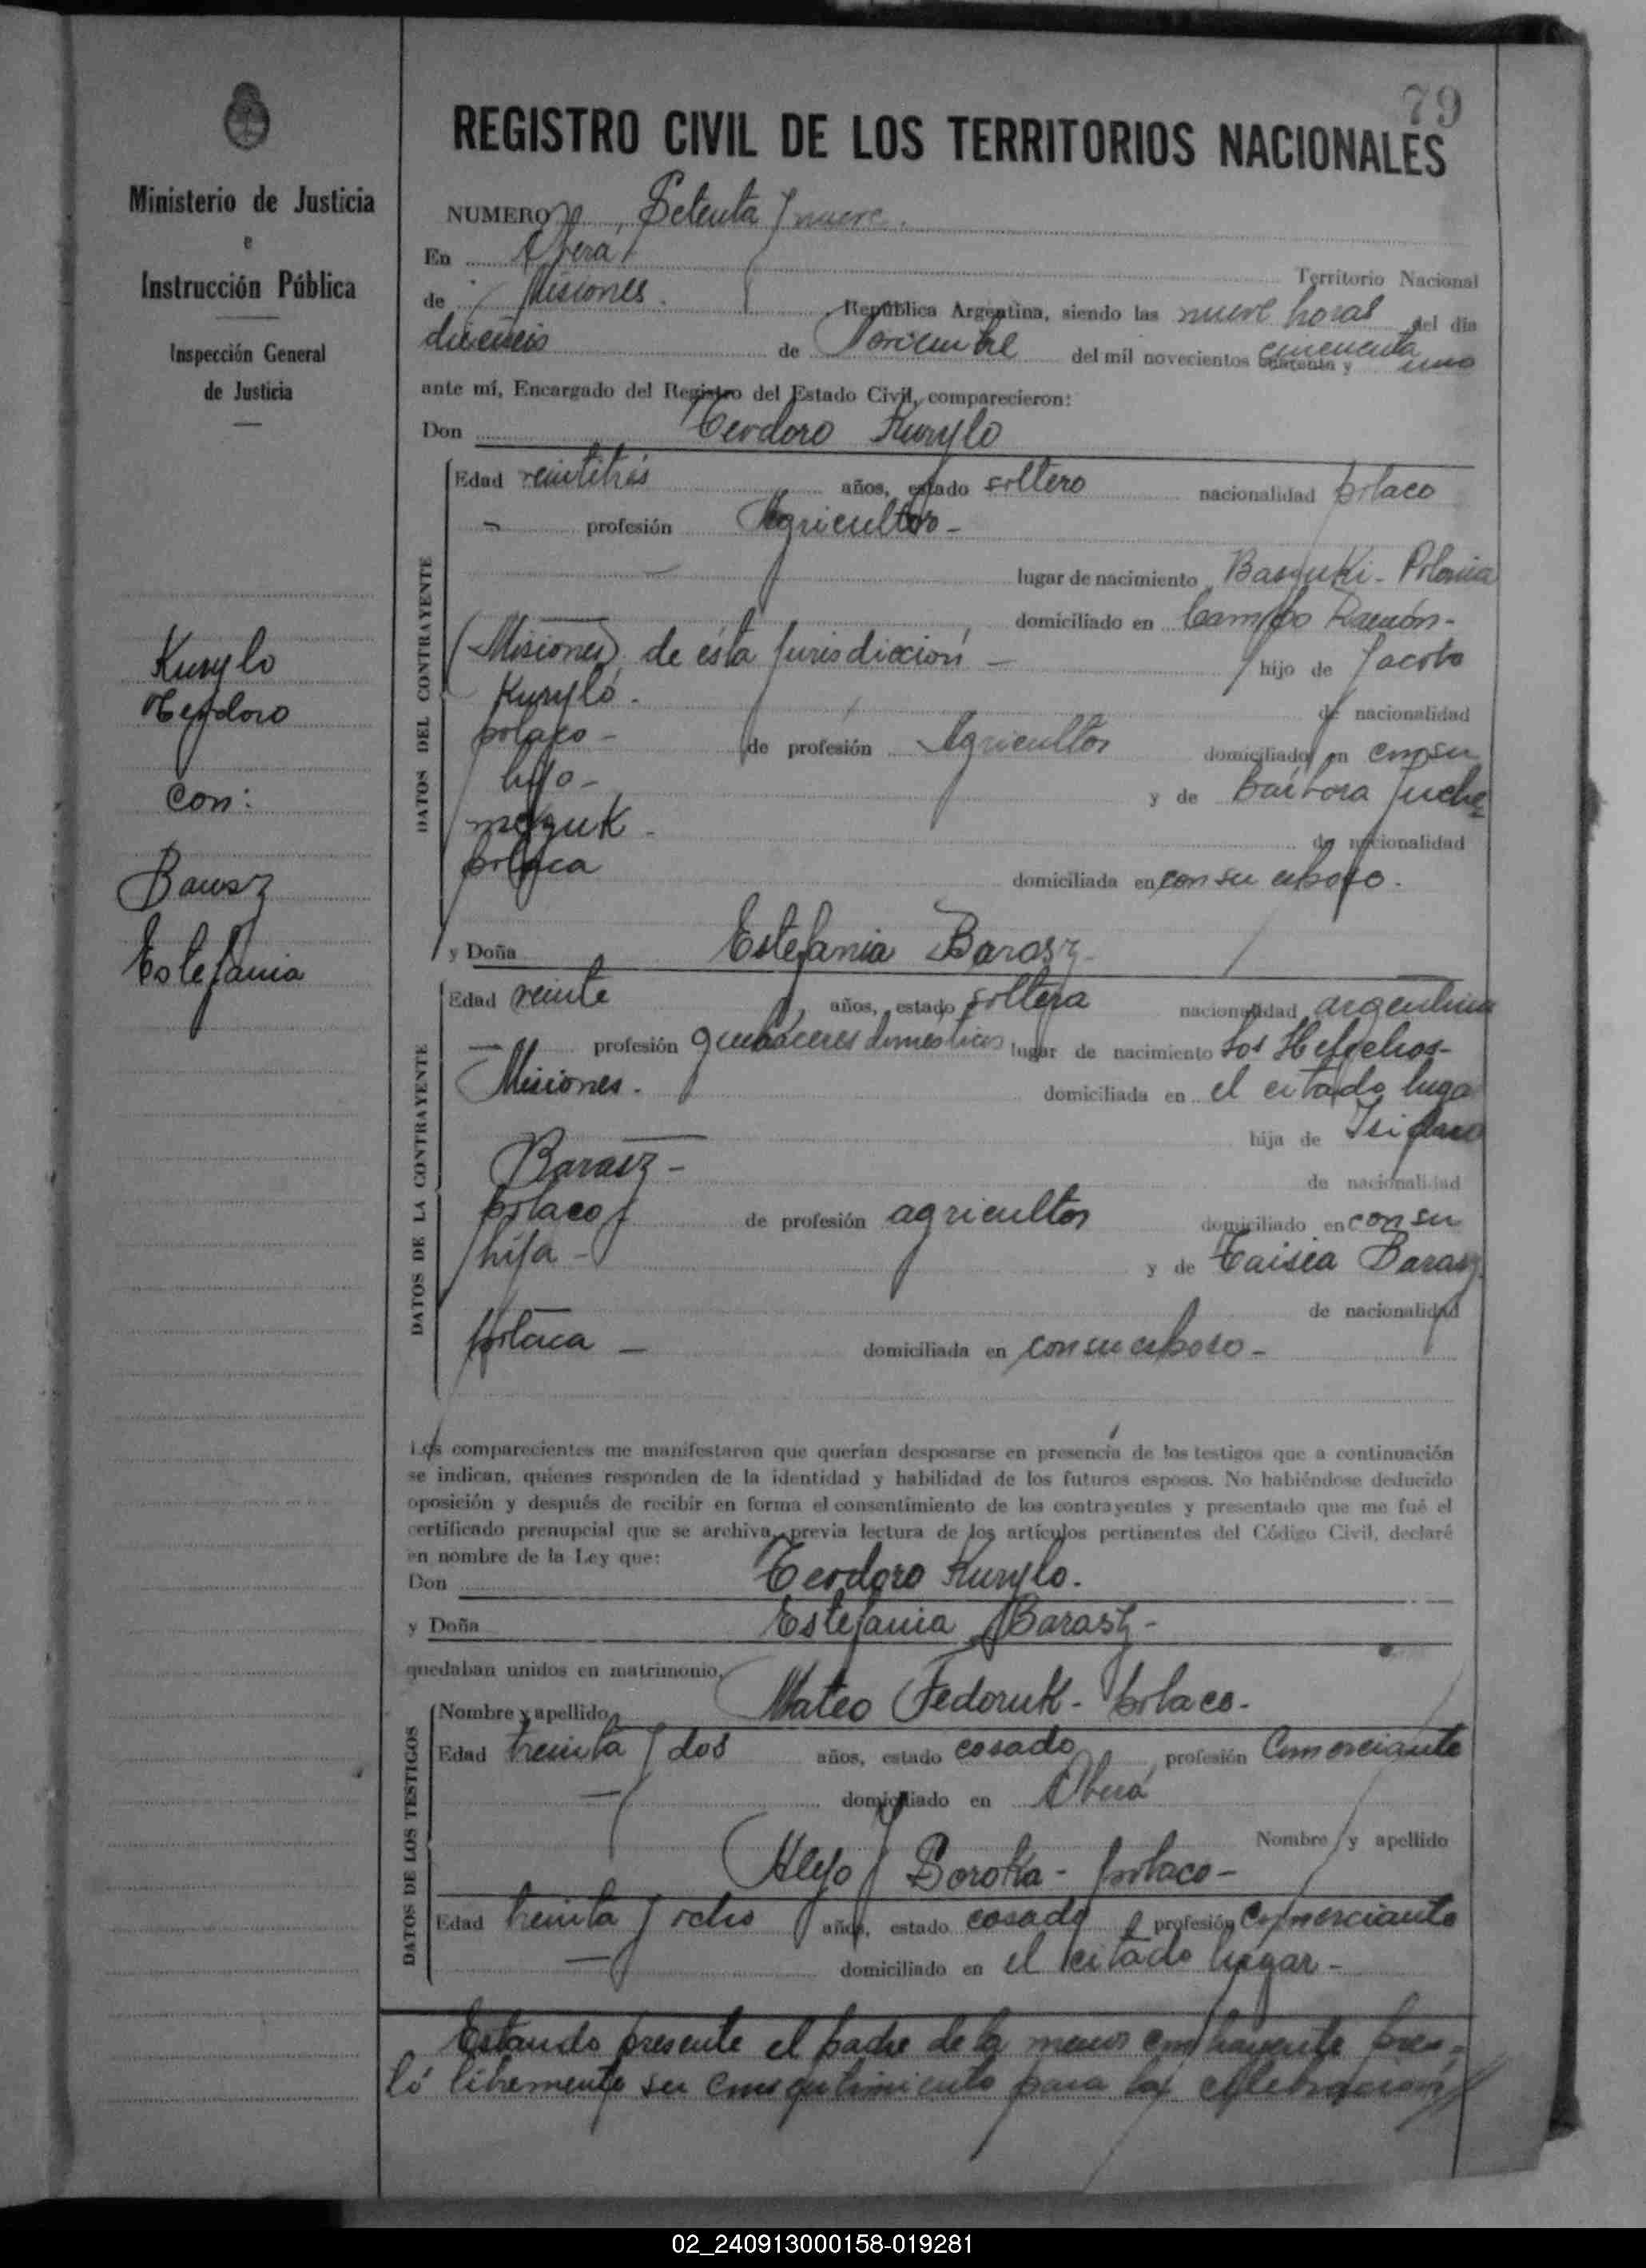 79
Ministerio de Justicia
e
Instrucción Pública
Inspección General
de Justicia
Kurylo
Teodoro
con:
Barasz
Estefania
REGISTRO CIVIL DE LOS TERRITORIOS NACIONALES
NUMERO 79, Setenta y nueve.
En Oberá, Territorio Nacional
de Misiones. República Argentina, siendo las nueve horas del día
dieciseis de Noviembre del mil novecientos cuarenta y cincuenta uno
ante mí, Encargado del Registro del Estado Civil, comparecieron:
Don Teodoro Kurylo
DATOS DEL CONTRAYENTE
Edad veintitrés años, estado soltero nacionalidad polaco
- profesión Agricultor-
lugar de nacimiento - Polonia
domiciliado en Campo Ramón-
(Misiones) de ésta jurisdiccion - hijo de Jacobo
Kurylo. de nacionalidad
polaco - de profesión Agricultor domiciliado en con su
hijo - y de Bárbora
de nacionalidad
polaca domiciliada en con su esposo.
y Doña Estefania Barasz-
DATOS DE LA CONTRAYENTE
Edad veinte años, estado soltera nacionalidad argentina
- profesión quehaceres domésticos lugar de nacimiento Los Helechos-
Misiones. domiciliada en el citado lugar
hija de Isidoro
Barasz - de nacionalidad
polaco de profesión agricultor domiciliado en con su
hija - y de Taisia Barasz
de nacionalidad
polaca - domiciliada en con su esposo -
Los comparecientes me manifestaron que querían desposarse en presencia de los testigos que a continuación
se indican, quienes responden de la identidad y habilidad de los futuros esposos. No habiéndose deducido
oposición y después de recibir en forma el consentimiento de los contrayentes y presentado que me fué el
certificado prenupcial que se archiva, previa lectura de los artículos pertinentes del Código Civil, declaré
en nombre de la Ley que:
Don Teodoro Kurylo.
y Doña Estefania Barasz-
quedaban unidos en matrimonio,
DATOS DE LOS TESTIGOS
Nombre y apellido Mateo Fedoruk - polaco-
Edad treinta y dos años, estado casado profesión Comerciante
- domiciliado en Oberá
Nombre y apellido
Alejo Soroka - polaco-
Edad treinta y ocho años, estado casado profesión Comerciante
- domiciliado en el citado lugar-
Estando presente el padre de la menor contrayente pres-
tó libremente su consentimiento para la celebracion
02_240913000158-019281